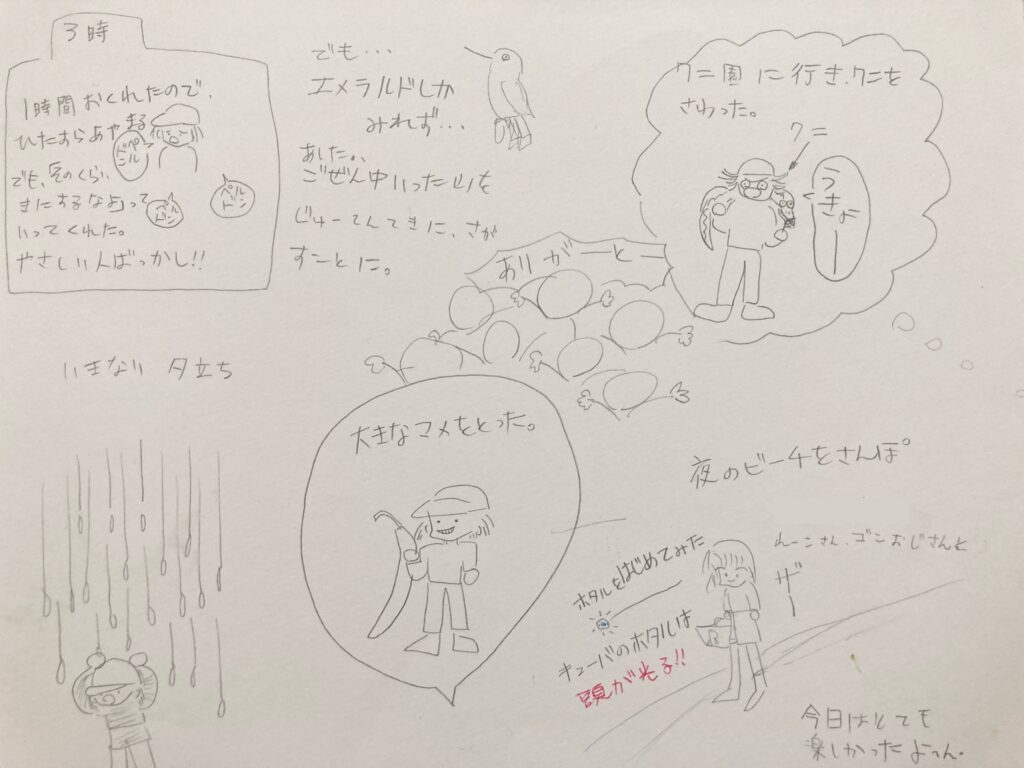 3時
1時間おくれたので、
ひたすらあやまる
ペル
ドン
でも、そのくらい
きにするなよって
いってくれた。
やさしい人ばっかし!!
ペル
ドン
ペル
ドン
でも・・・
エメラルドしか
みれず・・・
あした。、
ごぜん中いった山を
じゅーてんてきに、さが
すーとに。
ワニ園に行き、ワニを
さわった。
ワニ
うきょー
ありがーとー
いきなり 夕立ち
大きなマメをとった。
夜のビーチをさんぽ
んーこさん、ゴンおじさんと
ザー
ホタルをはじめてみた
キューバのホタルは
頭が光る!!
今日はとても
楽しかったよっん.